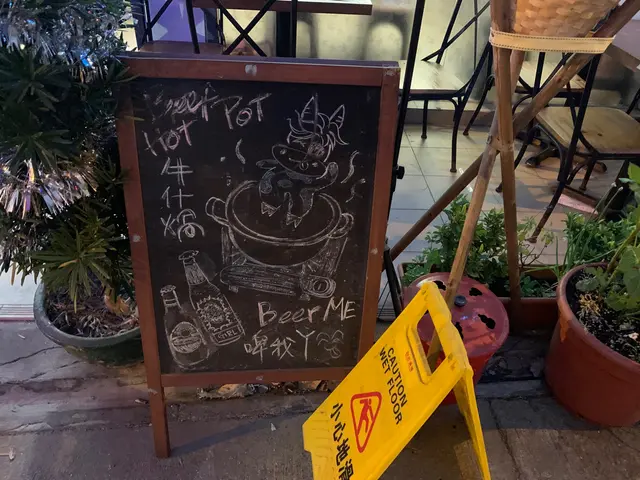 Beef
Hot
POT
牛
什
鍋
GIRL
Beer ME
啤我丫
CAUTION
WET FLOOR
小心地滑